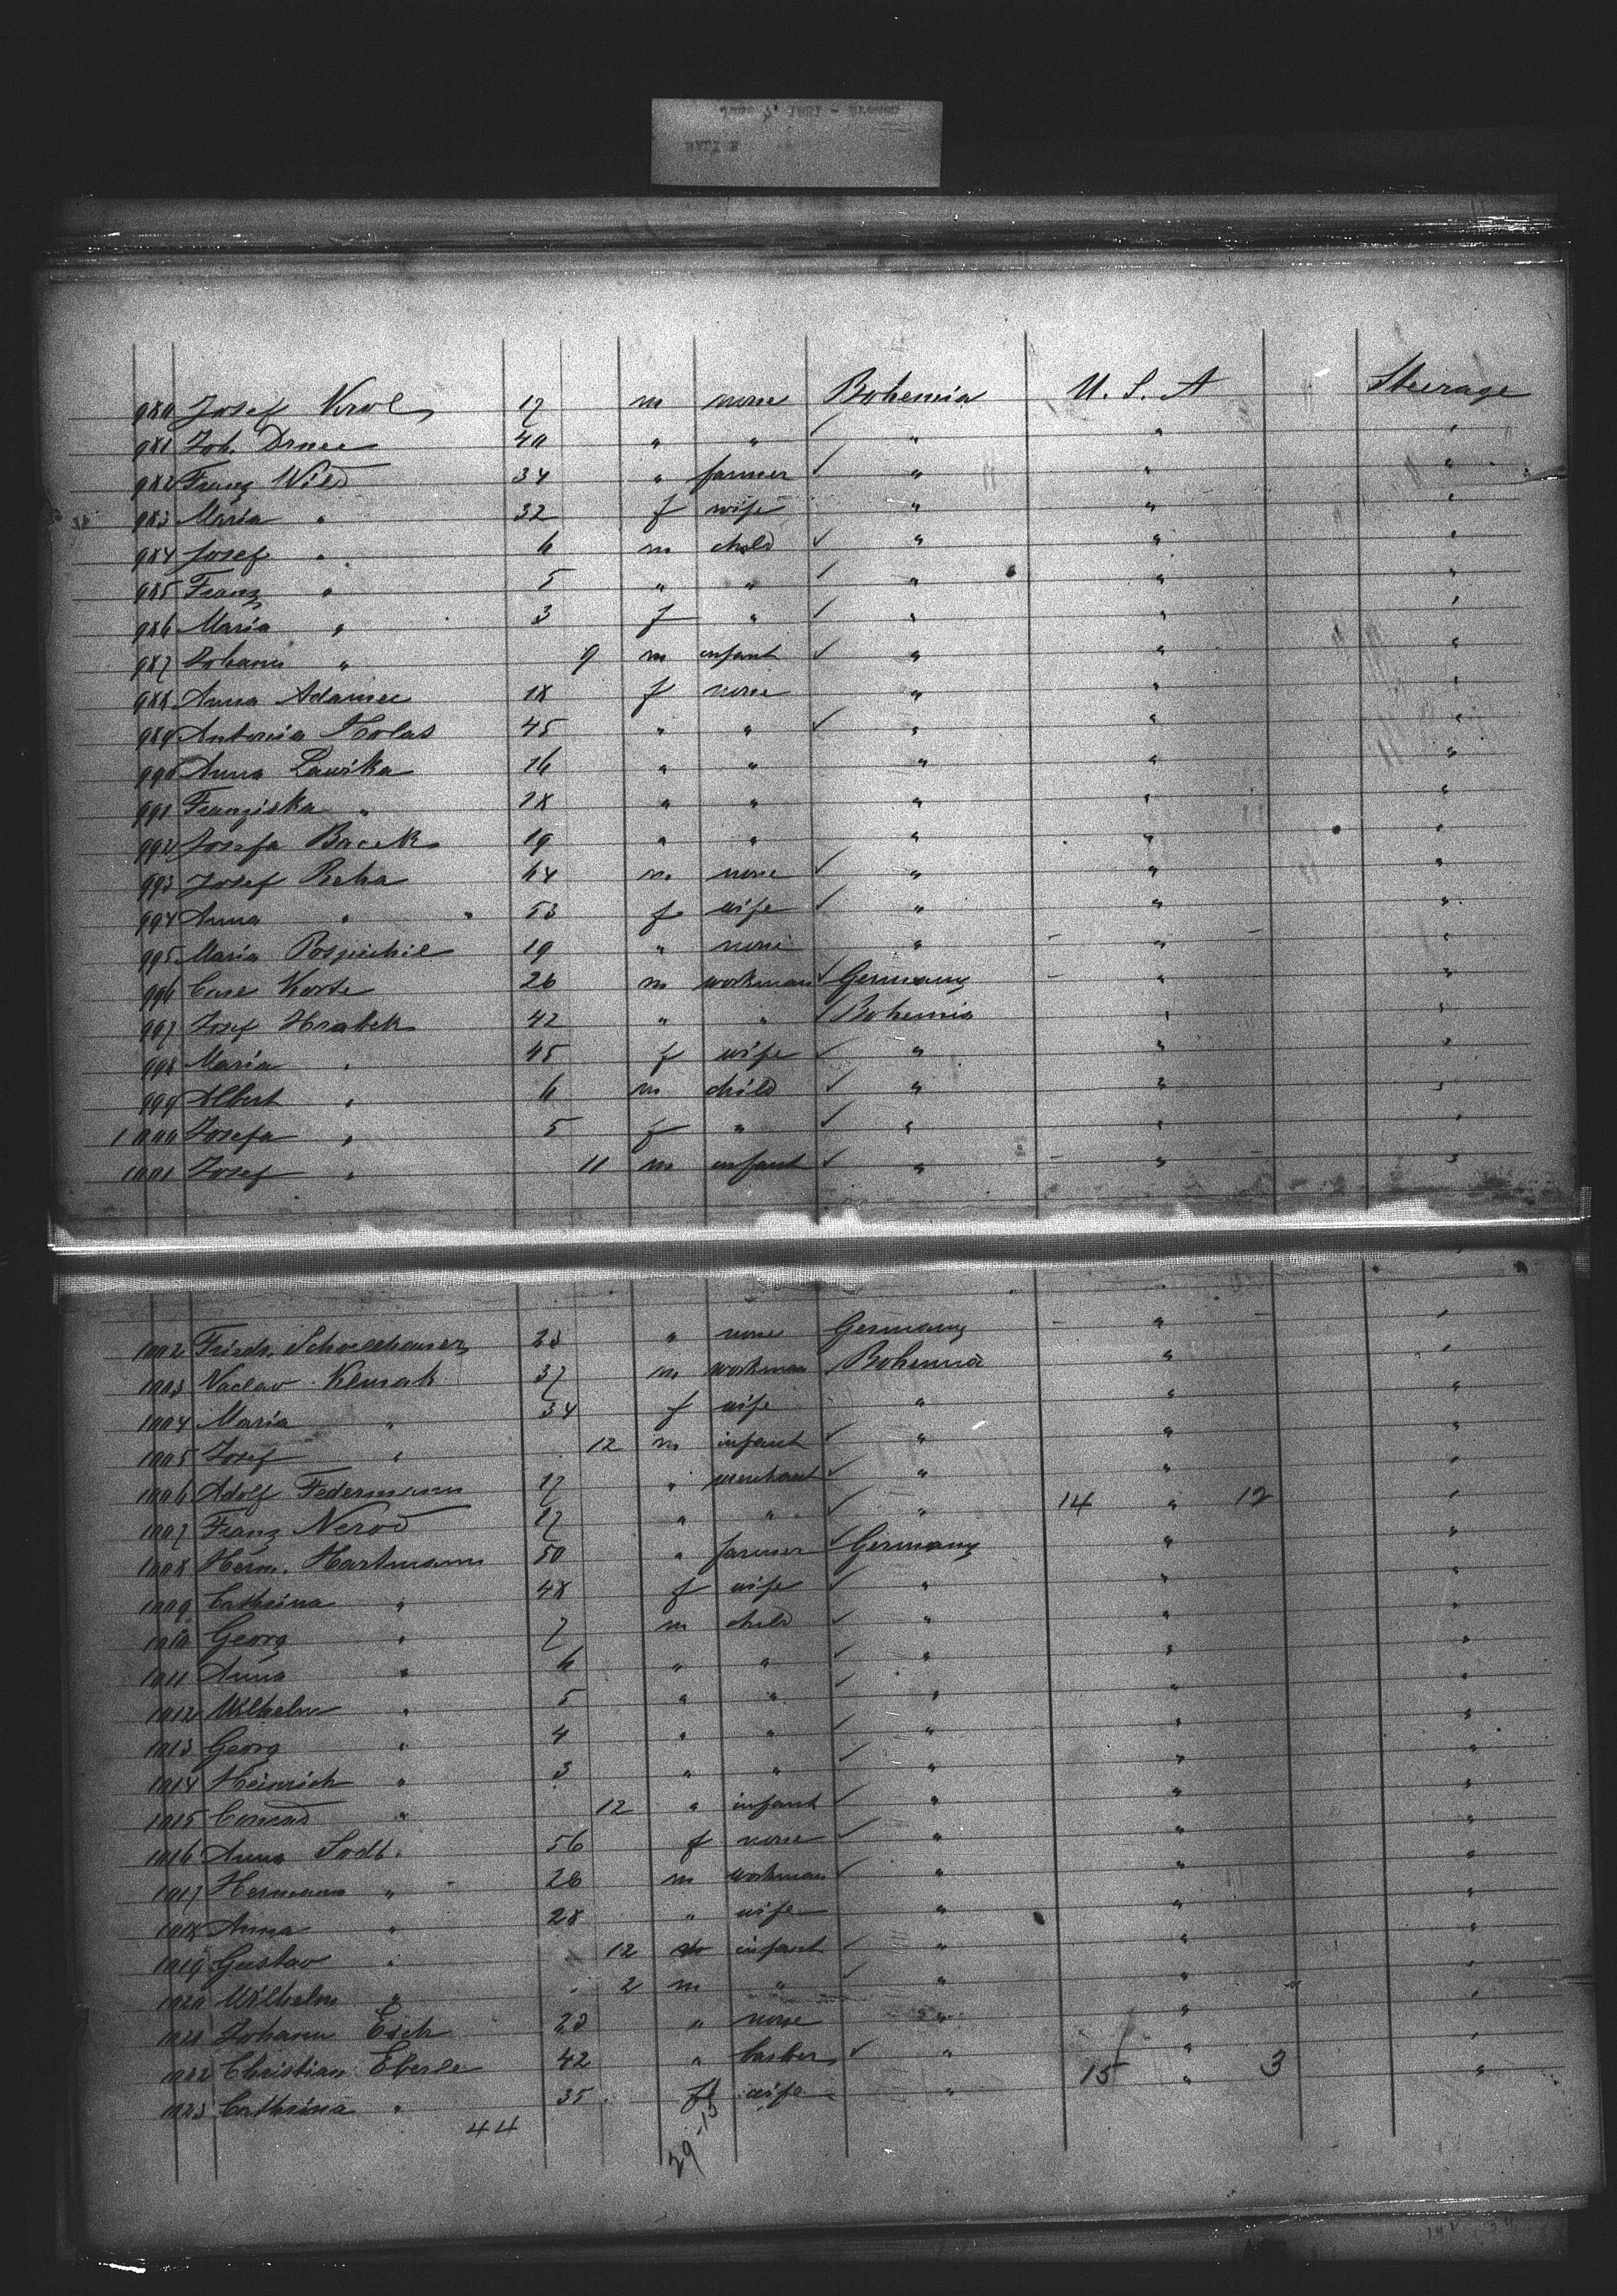 980 Josef Krol 17 m none Bohemia U. S. A Steerage
981 Joh. Drnec 40 " " " " "
982 Franz Wild 34 " farmer " " "
983 Maria " 32 f wife " " "
984 Josef " 6 m child " " "
985 Franz " 5 " " " " "
986 Maria " 3 f " " " "
987 Johann " 9 m infant " " "
988 Anna Adamec 18 f none " " "
989 Antonia Kolas 45 " " " " "
990 Anna 16 " " " " "
991 Franziska " 18 " " " " "
992 Josefa Bacek 19 " " " " "
993 Josef Reha 64 m none " " "
994 Anna " 53 f wife " " "
995 Maria Pospichil 19 " none " " "
996 Carl Korte 26 m workman Germany " "
997 Josef Hrabek 42 " " Bohemia " "
998 Maria " 45 f wife " " "
999 Albert " 6 m child " " "
1000 Josefa " 5 f " " " "
1001 Josef " 11 m infant " " "
1002 Friedr. 23 " none Germany " "
1003 Vaclav 37 m workman Bohemia " "
1004 Maria " 34 f wife " " "
1005 Josef " 12 m infant " " "
1006 Adolf Federmann 17 " merchant " " "
1007 Franz Nerod 17 " " " 14 " 12 "
1008 Herm. Hartmann 50 " farmer Germany " "
1009 Cathrina " 48 f wife " " "
1010 Georg " 7 m child " " "
1011 Anna " 6 " " " " "
1012 Wilhelm " 5 " " " " "
1013 Georg " 4 " " " " "
1014 Heinrich " 3 " " " " "
1015 Conrad " 12 " infant " " "
1016 Anna Sodt. 56 f none " " "
1017 Hermann " 26 m workman " " "
1018 Anna " 28 " wife " " "
1019 Gustav " 12 infant " " "
1020 Wilhelm " 2 m " " " "
1021 Johann Esch 23 " none " " "
1022 Christian Eberle 42 " barber " " "
1023 Cathrina " 35 f wife " 15 " 3 "
44 29-15